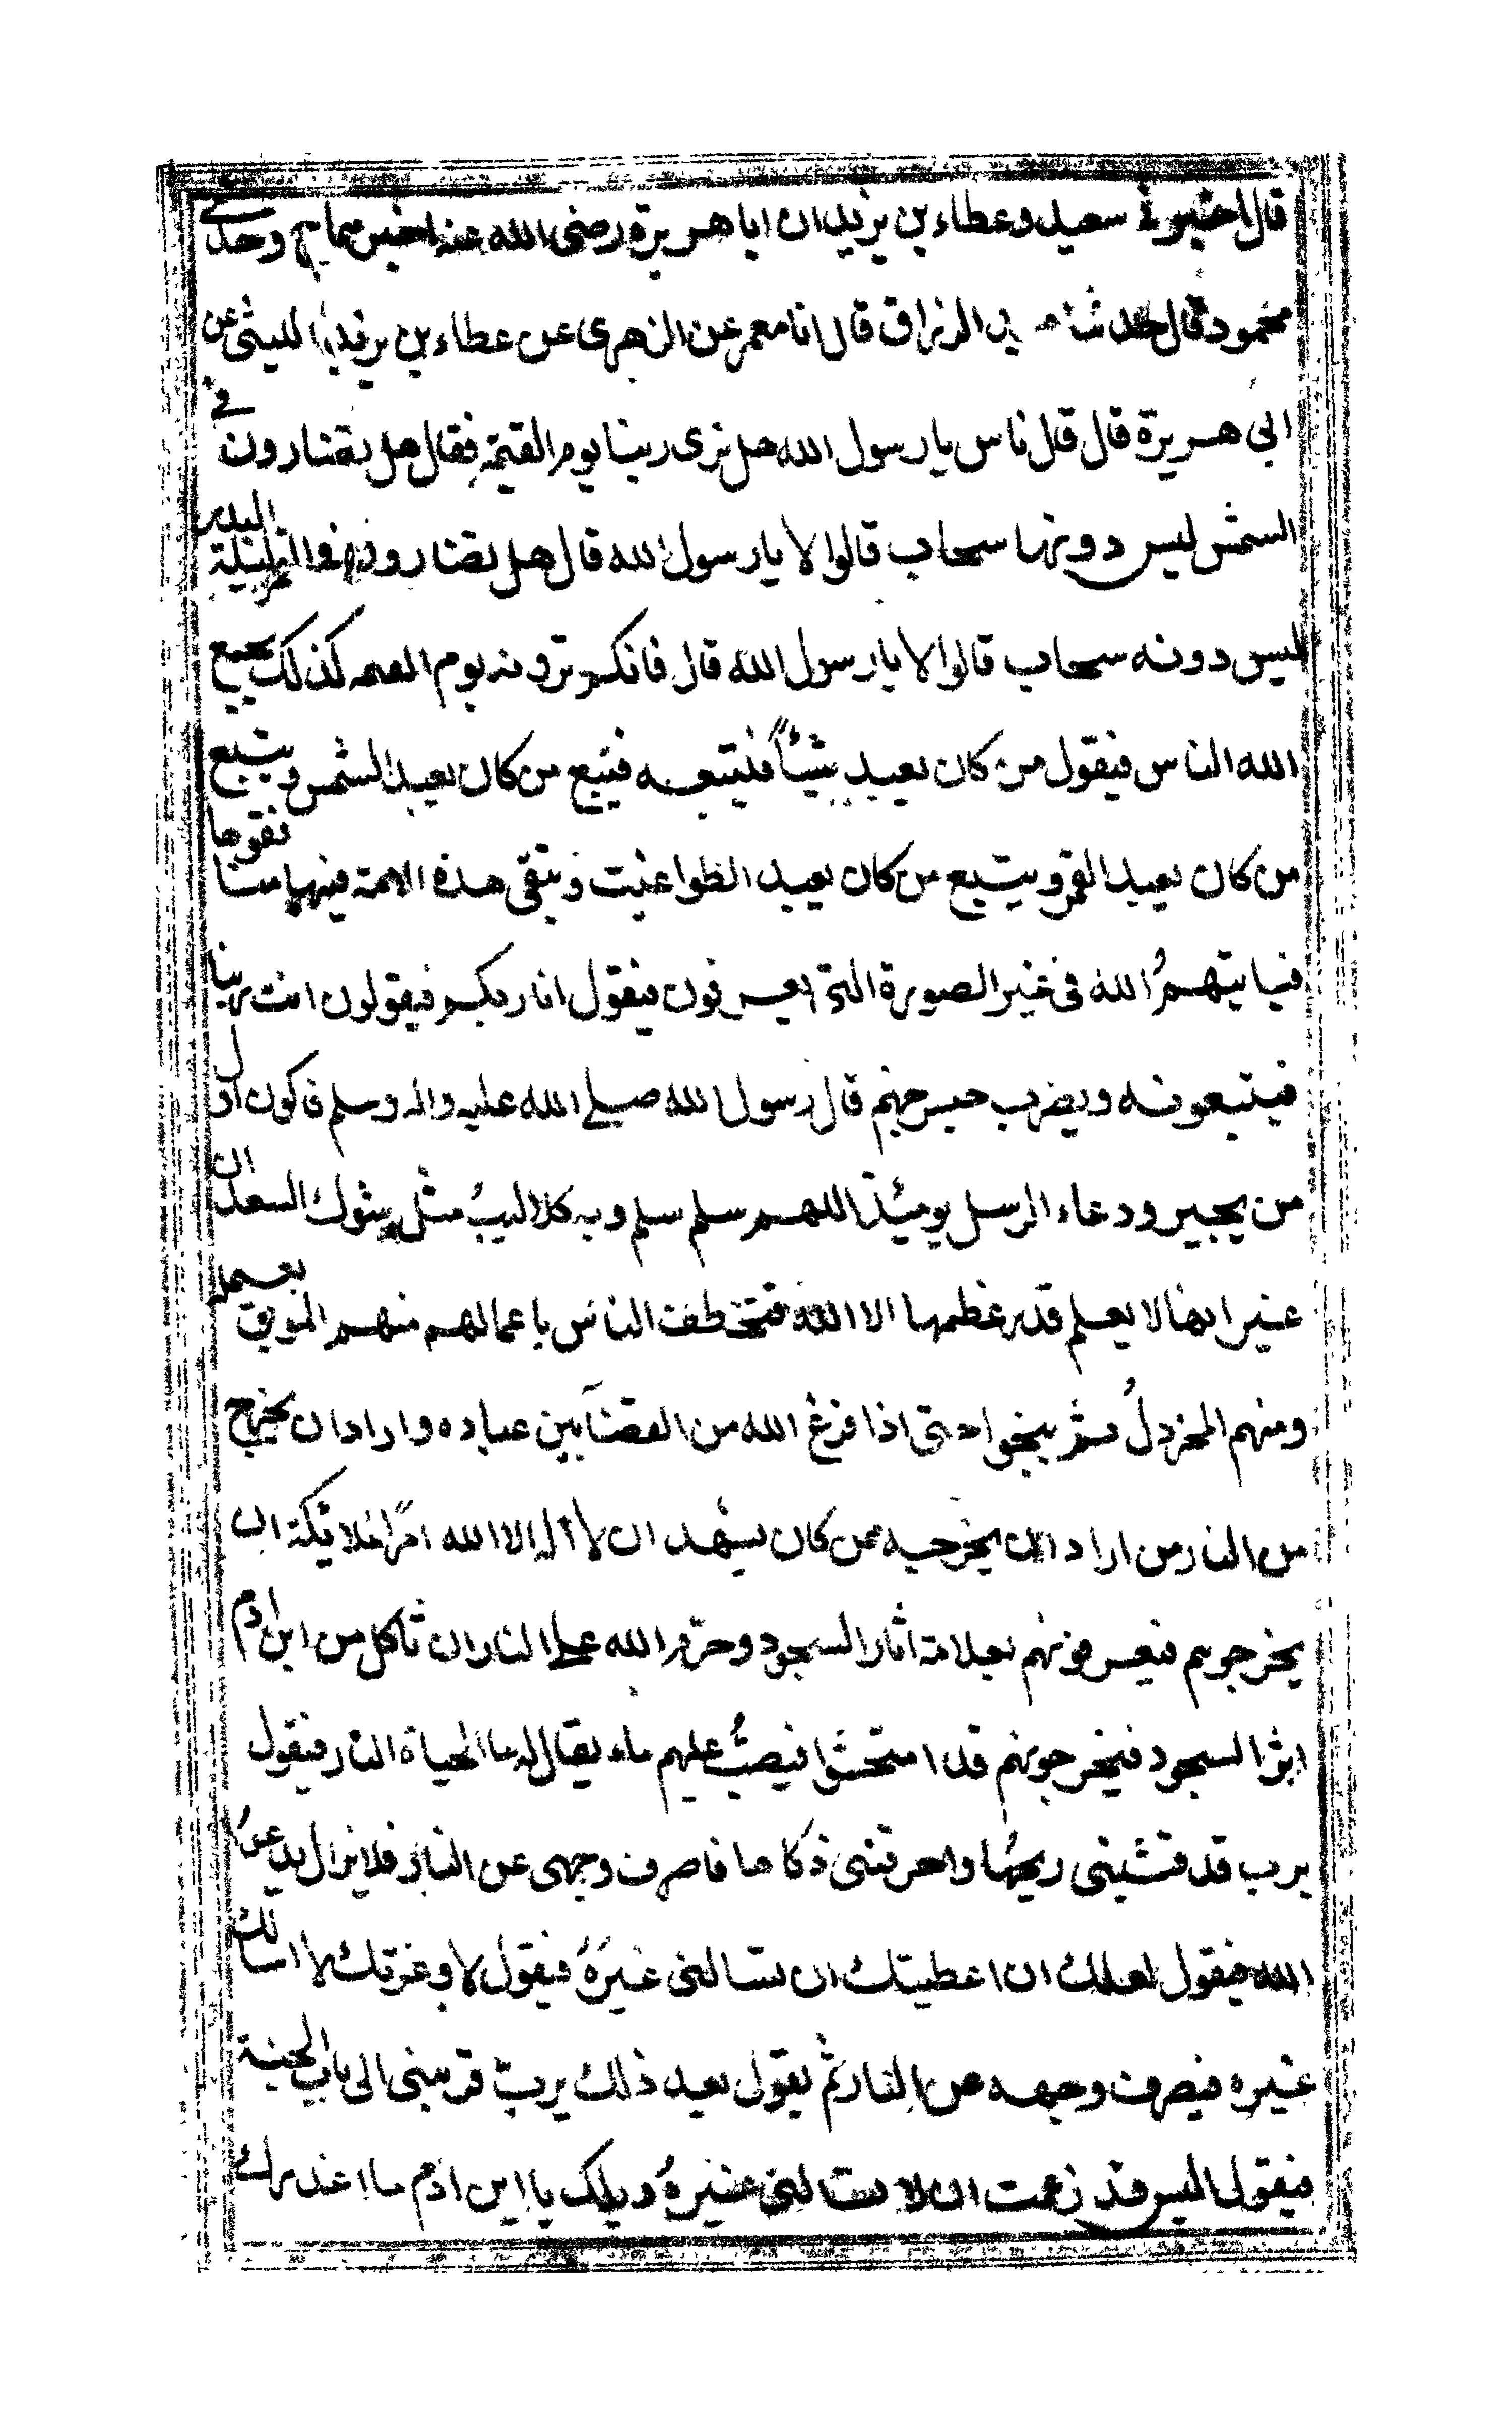 قال اخبرني سعيد وعطاء بن يزيد ان ابا هريرة رضى الله عنه اخبرهما ح وحدثنى
محمود قال حدثنا عبد الرزاق قال انا معمر عن الزهرى عن عطاء بن يزيد الليثى عن
ابى هريرة قال قال ناس يا رسول الله هل نرى ربنا يوم القيمة فقال هل تضارون فى
الشمس ليس دونها سحاب قالوا لا يا رسول الله قال هل تضارون فى القمر ليلة البدر
ليس دونه سحاب قالوا لا يا رسول الله قال فانكم ترونه يوم القيمه كذلك يجمع
الله الناس فيقول من كان يعبد شيئاً فليتبعه فيتبع من كان يعبد الشمس ويتبع
من كان يعبد القمر ويتبع من كان يعبد الطواغيت وتبقى هذه الامة فيها منافقوها
فياتيهمُ الله فى غير الصورة التى يعرفون فيقول انا ربكم فيقولون انت ربنا
فيتبعونه ويضرب جسر جهنم قال رسول الله صلى الله عليه واله وسلم فاكون اول
من يجيز ودعاء الرسل يومئذ اللهم سلم سلم وبه كلاليبُ مثل شوك السعدان
غير انها لا يعلم قدر عظمها الا الله فتخطف الناس باعمالهم منهم الموبق بعمله
ومنهم المخردلُ ثم ينجوا حتى اذا فرغ الله من القضآ بين عباده واراد ان يخرج
من النار من اراد ان يخرجه ممن كان يشهد ان لا اله الا الله امر الملائكة ان
يخرجوهم فيعرفونهم بعلامة اثار السجود وحرّم الله على النار ان تأكل من ابن ادم
اثر السجود فيخرجونهم قد امتحشوا فيصبُّ عليهم ماء يقال له ما الحياة النار فيقول
يرب قد قشبنى ريحها واحرقنى ذكاها فاصرف وجهى عن النار فلا يزال يدعو
الله فيقول لعلك ان اعطيتك ان تسالنى غيرَهُ فيقول لا وعزتك لا اسالك
غيره فيصرف وجهه عن النار ثم يقول بعد ذلك يربّ قربنى الى باب الجنة
فيقول اليس قد زعمت ان لا تسالنى غيرهُ ويلك يا ابن ادم ما اغدرك